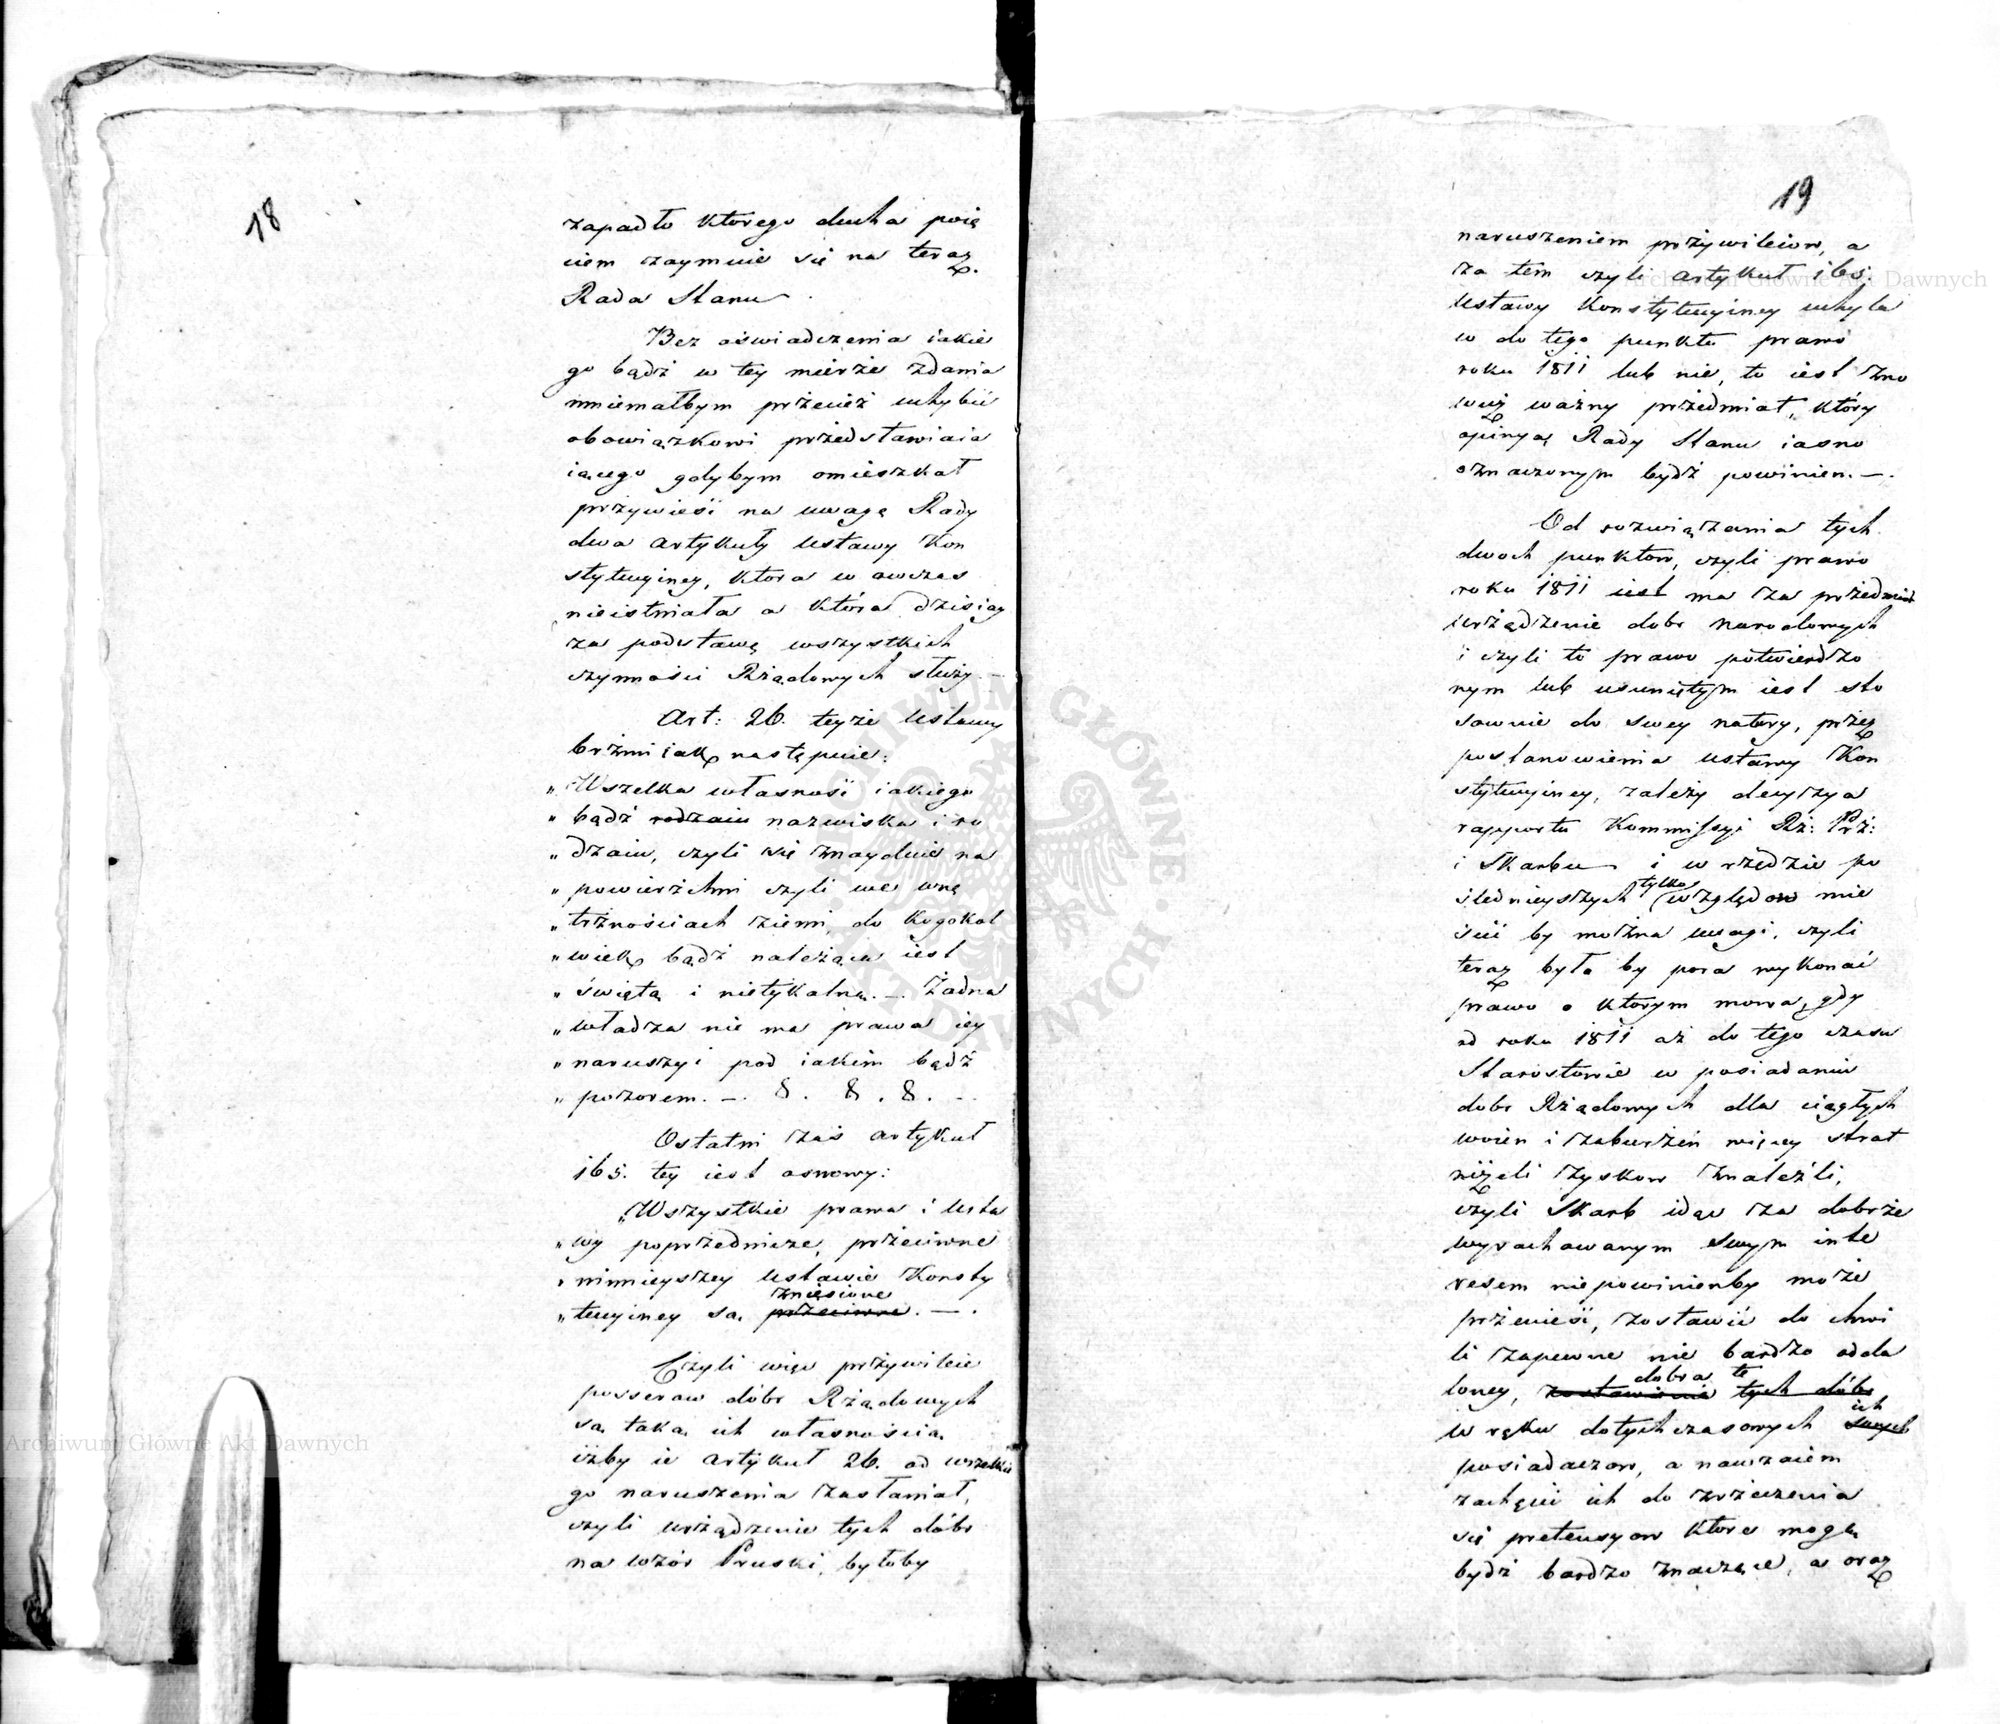 18
zapadło ktorego ducha poię
ciem zaymuie się na teraz
Rada Stanu.
Bez oświadczenia iakie
go bądź w tey mierże zdania
mniemałbym przecież uchybić
obowiązkowi przedstawiaia
iącego gdybym omieszkał
przywieść na uwagę Rady
dwa artykuły Ustawy Kon
stytucyiney, ktora w owczas
nieistniała a która dzisiay
za podstawę wszystkich
czynności Rżądowych służy. —
Art: 26. teyże Ustawy
brżmi iak następuie:
„Wszelka własność iakiego
„bądź rodzaiu nazwiska i ro
„dzaiu, czyli się znayduie na
„powierżchni czyli we wnę
„trżnościach ziemi, do kogokol
„wiek bądź należąca iest
„świętą i nietykalną. — Żadna
„władza nie ma prawa iey
„naruszyć pod iakim bądź
„pozorem. — . 8. 8. 8. —
Ostatni zaś artykuł
165. tey iest osnowy:
„Wszystkie prawa i usta
„wy poprzednicze, przeciwne
„ninnieyszey Ustawie Konsty
zniesione
„tucyiney są przeciwne. — .
Czyli więc przywileie
possesow dóbr Rżądowych
są taką ich własnością
iżby ie artykuł 26. od wszelkie
go naruszenia zasłaniał,
czyli urżądzenie tych dóbr
na wzór Pruski, byłoby
19
naruszeniem przywileiow, a
za tem czyli artykuł 165.
Ustawy Konstytucyiney uchyla
w do tego punktu prawo
roku 1811 lub nie, to iest zno
wuż ważny przedmiot, który
opinyą Rady Stanu iasno
oznaczonym bydź powinien. — .
Od rozwiązania tych
dwoch punktow, czyli prawo
roku 1811 iest ma za przedmiot
urżądzenie dobr narodowych
i czyli to prawo potwierdzo
nym lub usuniętym iest sto
sownie do swey natury, przez
postanowienia Ustawy Kon
stytucyiney, zależy decyzya
rapportu Kommissyi Rż: Prż:
i Skarbu i w rzędzie po
tylko
ślednieyszych względow mie
ścić by można uwagi, czyli
teraz była by pora wykonać
prawo o ktorym mowa, gdy
od roku 1811 aż do tego czasu
Starostowie w posiadaniu
dobr Rżądowych dla ciągłych
woien i zaburżeń więcey strat
niżeli zyskow znaleźli,
czyli Skarb idąc za dobrże
wyrachowanym swym inte
resem niepowinienby może
przenieść, zostawić do chwi
li zapewne nie bardzo odda
dobra te
loney, zostawienia tych dóbr
ich
w ręku dotychczasowych swych
posiadaczow, a nawzaiem
zachęcić ich do zrżeczenia
się pretensyow ktore mogą
bydź bardzo znaczące, a oraz